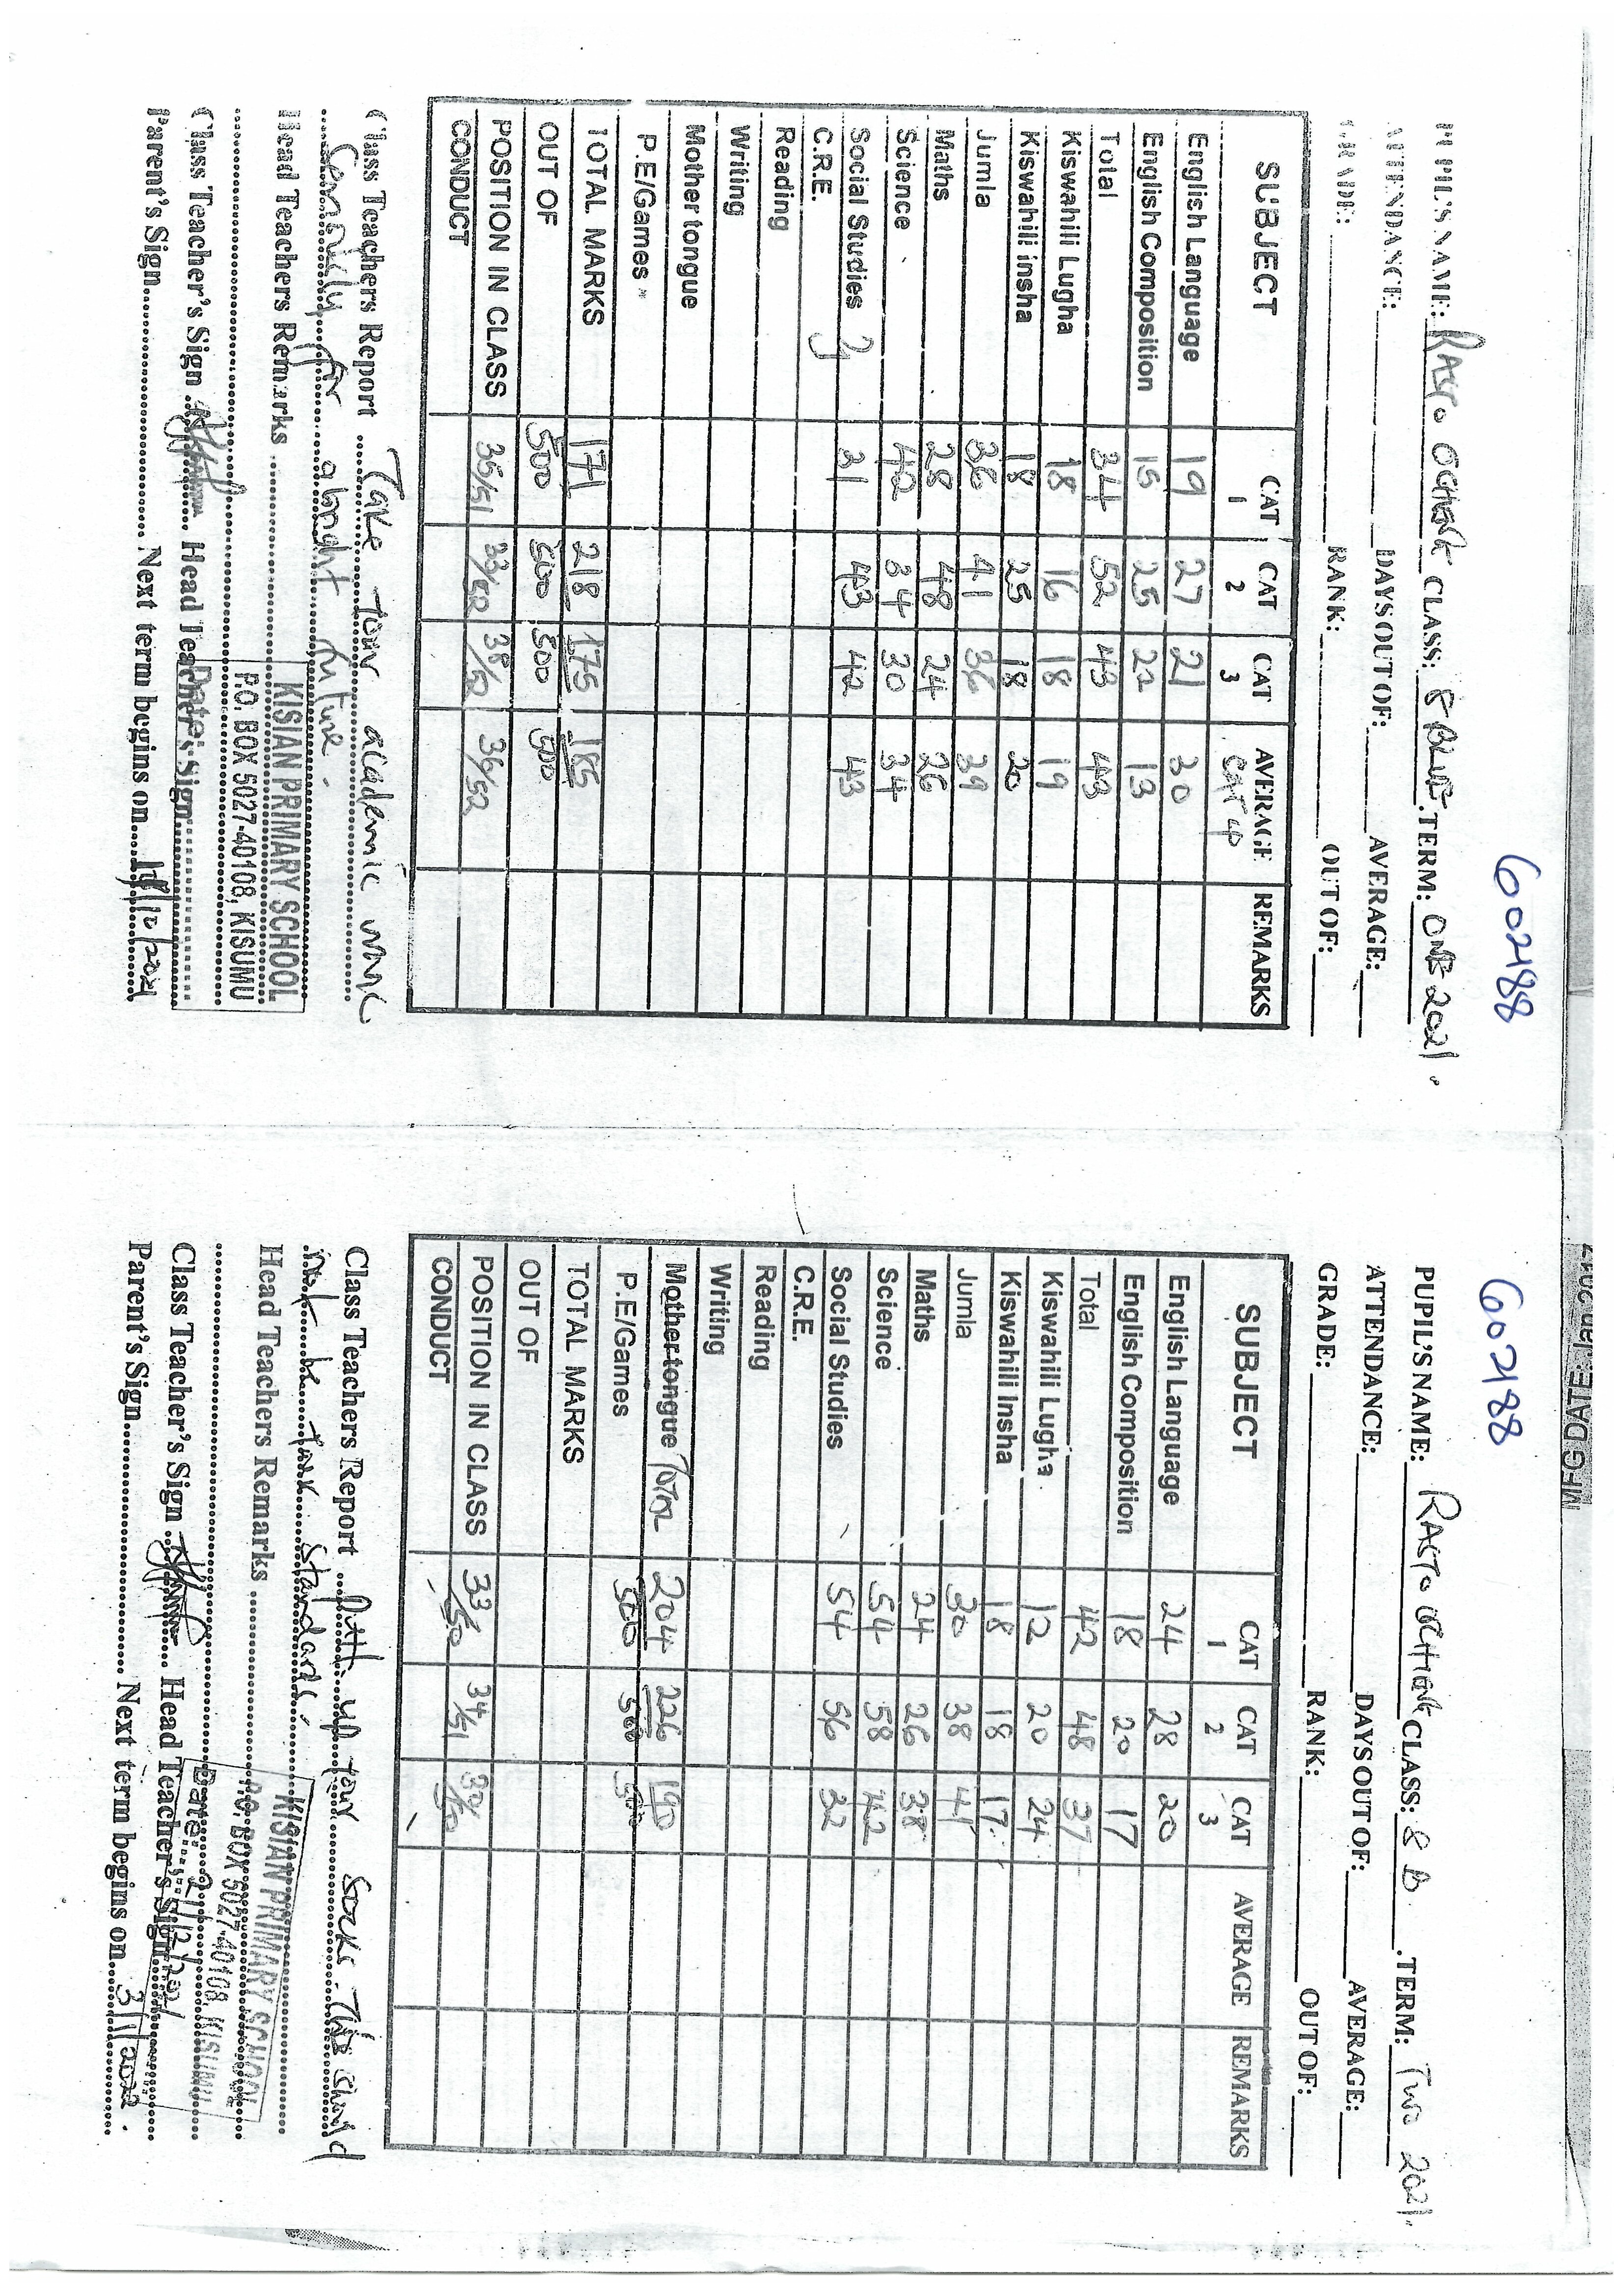 602188
PUPIL'S NAME: RASTO OCHIENG CLASS: 8 BLUE TERM: ONE 2021.
ATTENDANCE: DAYS OUT OF: AVERAGE:
GRADE: RANK: OUT OF:
SUBJECT CAT 1 CAT 2 CAT 3 AVERAGE CAT 4 REMARKS
English Language 19 27 21 30
English Composition 15 25 22 13
Total 34 52 43 43
Kiswahili Lugha 18 16 18 19
Kiswahili insha 18 25 18 20
Jumla 36 41 36 39
Maths 28 48 24 26
Science 42 34 30 34
Social Studies 31 43 42 43
C.R.E.
Reading
Writing
Mother tongue
P.E/Games
TOTAL MARKS 171 218 175 185
OUT OF 500 500 500 500
POSITION IN CLASS 35/51 33/52 38/52 36/52
CONDUCT
Class Teachers Report Take your academic work
for future.
Head Teachers Remarks
KISIAN PRIMARY SCHOOL
P.O. BOX 5027-40108, KISUMU
Date: Sign
Class Teacher's Sign Head Teacher's Sign
Parent's Sign Next term begins on 11/10/2021
MFG DATE: Jan 2017
602188
PUPIL'S NAME: RASTO OCHIENG CLASS: 8 B TERM: Two 2021.
ATTENDANCE: DAYS OUT OF: AVERAGE:
GRADE: RANK: OUT OF:
SUBJECT CAT 1 CAT 2 CAT 3 AVERAGE REMARKS
English Language 24 28 20
English Composition 18 20 17
Total 42 48 37
Kiswahili Lugha 12 20 24
Kiswahili Insha 18 18 17
Jumla 30 38 41
Maths 24 26 38
Science 54 58 42
Social Studies 54 56 32
C.R.E.
Reading
Writing
Mother tongue TOTAL 204 226 190
P.E/Games 500 500 500
TOTAL MARKS
OUT OF
POSITION IN CLASS 33/50 34/51 30/50
CONDUCT
Class Teachers Report Pull up your socks. This should
not be your standard.
Head Teachers Remarks
KISIAN PRIMARY SCHOOL
P.O. BOX 5027-40108, KISUMU
Date: 21/12/2021
Class Teacher's Sign Head Teacher's Sign
Parent's Sign Next term begins on 3/1/2022.